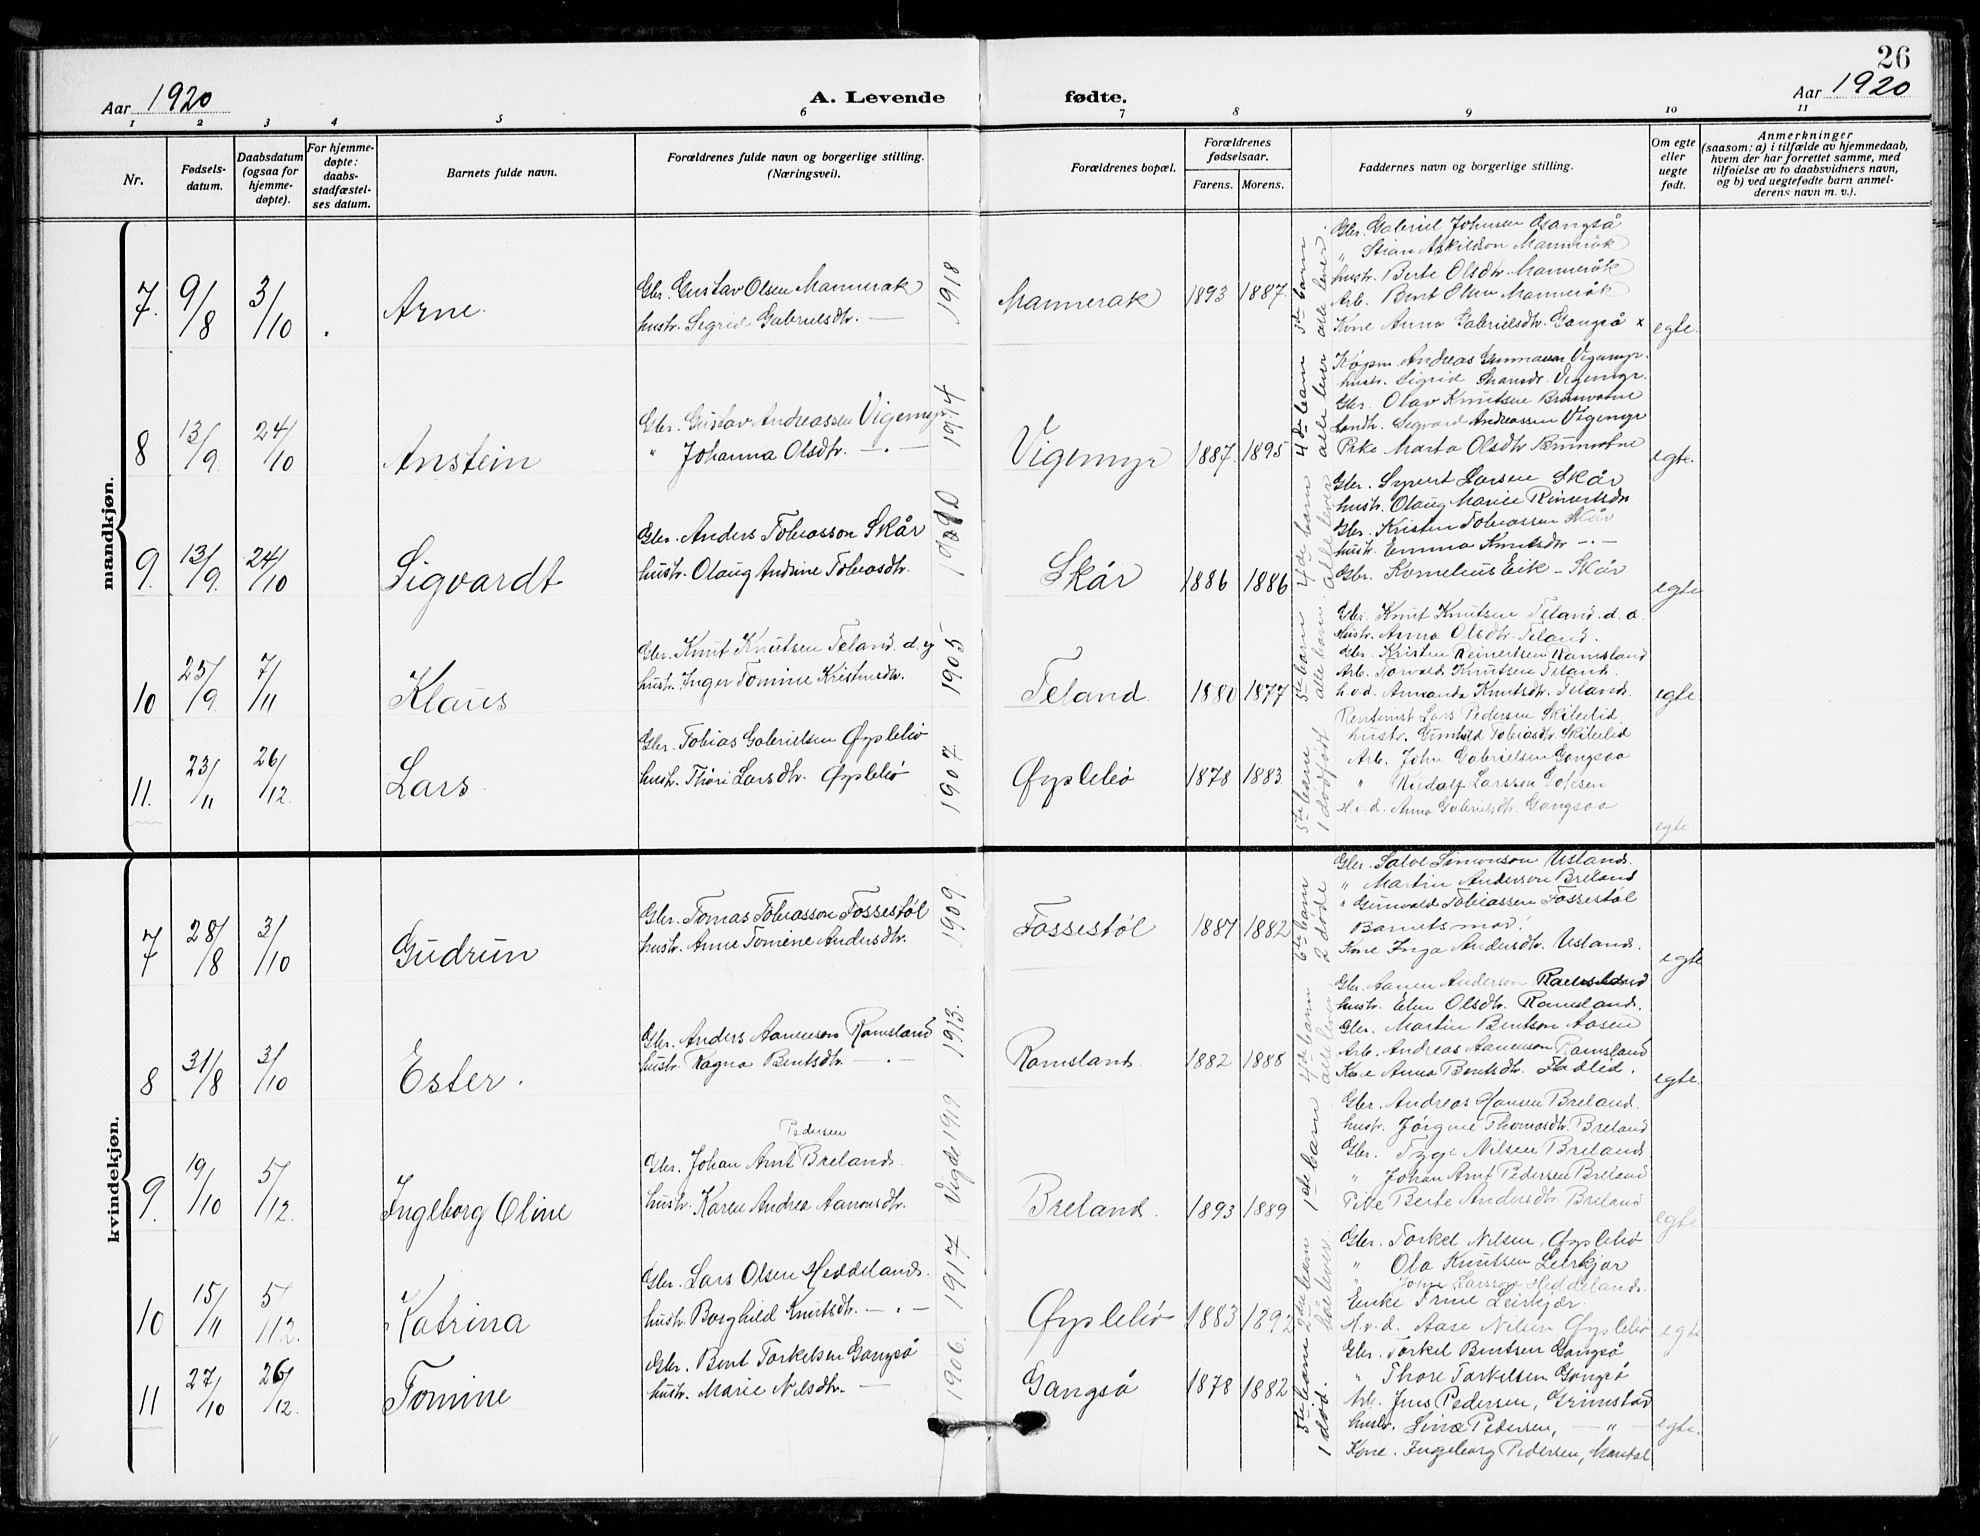 26
Aar 1920
A. Levende fødte.
Aar 1920
1 2 3 4 5 6 7 8 9 10 11
Nr.
Fødsels-
datum.
Daabsdatum
(ogsaa for
hjemme-
døpte).
For hjemme-
døpte:
daabs-
stadfæstel-
ses datum.
Barnets fulde navn.
Forældrenes fulde navn og borgerlige stilling.
(Næringsvei).
Forældrenes bopæl.
Forældrenes
fødselsaar.
Farens. Morens.
Faddernes navn og borgerlige stilling.
Om egte
eller
uegte
født.
Anmerkninger
(saasom: a) i tilfælde av hjemmedaab,
hvem der har forrettet samme, med
tilføielse av to daabsvidners navn,
og b) ved uegtefødte barn anmel-
derens navn m. v.).
mandkjøn.
7. 9/8 3/10 Arne.
Gbr. Gustav Olsen Mannerak
hustr. Sigrid Gabrielsdtr. —
1918
Mannerak 1893 1887.
alle lever
Gbr. Gabriel Johnsen Gangså
" Stian Askildson Manneråk
hustr. Berte Olsdtr. Manneråk
Arb. Bent Olsen Manneråk
Kone Anna Gabrielsdtr. Gangså x
egte.
8 13/9 24/10 Anstein
Gbr. Gustav Andreassen Vigemyr
" Johanna Olsdtr. — . —
1914
Vigemyr 1887. 1895
4de barn
alle lever
Kjøpm. Andreas Gunnarsen Vigemyr.
hustr. Sigrid Hansdr. Vigemyr.
Gbr. Olav Knutsen
Landh. Sigvard Andreassen Vigemyr
Pike Marta Olsdtr
egte.
9. 13/9. 24/10 Sigvardt
Gbr. Anders Tobiasson Skår
hustr. Olaug Andrine Tobiasdtr.
Skår 1886 1886
4de barn
alle lever
Gbr. Sypert Larsen Skår
hustr. Olaug Marie Reinertsdtr
Gbr. Kristen Tobiassen Skår
hustr. Emma Knutsdtr — . —
Gbr. Kornelius Eik — Skår
egte
10 25/9 7/11 Klaus
Gbr. Knut Knutsen Teland d. y
hustr. Inger Tomine Kristensdtr.
1905
Teland. 1880 1877
5te barn
Gbr. Knut Knutsen Teland. d. e.
Hustr. Anna Olsdtr. Teland.
Gbr. Kristen Reinertsen Ramsland
Arb. Torvald Knutsen Teland.
h.v.d. Amanda Knutsdtr. Teland.
egte
11. 23/11 26/12. Lars
Gbr. Tobias Gabrielsen Øyslebø
hustr. Thori Larsdtr. Øyslebø
1907
Øyslebø 1878 1883
5te barn
1 dødfødt
Lars Pedersen Skileilid
hustr. Gunhild Tobiasdtr. Skileilid
Arb. John Gabrielsen Gangsaa
H.v.d. Anna Gabrielsdtr. Gangsaa
egte.
kvindekjøn.
7 28/8 3/10 Gudrun
Gbr. Tomas Tobiasson Fossestøl
hustr. Anne Tomine Andersdtr.
1909
Fossestøl 1887 1882
6te barn
2 døde
Gbr. Salve Simonson Usland.
" Martin Anderson Breland
" Gunvald Tobiassen Fossestøl
Barnets mor.
Kone Inga Andersdtr. Usland.
egte
8 31/8 3/10 Ester.
Gbr. Anders Aanenson Ramsland
hustr. Ragna Bentsdtr. — . —
1913.
Ramsland. 1882 1888
4de barn
alle lever
Gbr. Aanen Anderson Ramsland
hustr. Elen Olsdtr. Ramsland.
Gbr. Martin Bentson Aasen
Arb. Andreas Aanenson Ramsland
Kone Anna Bentsdtr.
egte.
9. 19/10 5/12. Ingleborg Oline
Pedersen
Gbr. Johan Arnt Breland.
hustr. Karen Andrea Aanonsdtr.
Vigde 1919
Breland. 1893 1889
1ste barn
Gbr. Andreas Hansen Breland.
hustr. Jørgine Thomasdtr. Breland
Gbr. Tyge Nilsen Breland
" Johan Arnt Pedersen Breland
Pike Berte Andersdtr. Breland
egte
10 15/11 5/12. Katrina
Gbr. Lars Olsen Heddeland.
hustr. Borghild Knutsdtr. — . —
1917
Øyslebø 1883 1892
2det barn
lever.
Gbr. Torkel Nilsen, Øyslebø
" Ola Knutsen Leirkjær
" John Larsson Heddeland.
Enke Trine Leirkjær.
H.v.d. Aase Nilsen Øyslebø
egte
11 27/10 26/12. Tomine
Gbr. Bent Torkelsen Gangså
hustr. Marie Nilsdtr. —
1906.
Gangså 1878 1882
5te barn
1 død.
Gbr. Torkel Bentsen Gangså
" Thore Torkelsen Gangsø
Arb. Jens Pedersen, Grimstad
hustr. Lina Pedersen, — " —
Kone. Ingeborg Pedersen, Mandal
egte.